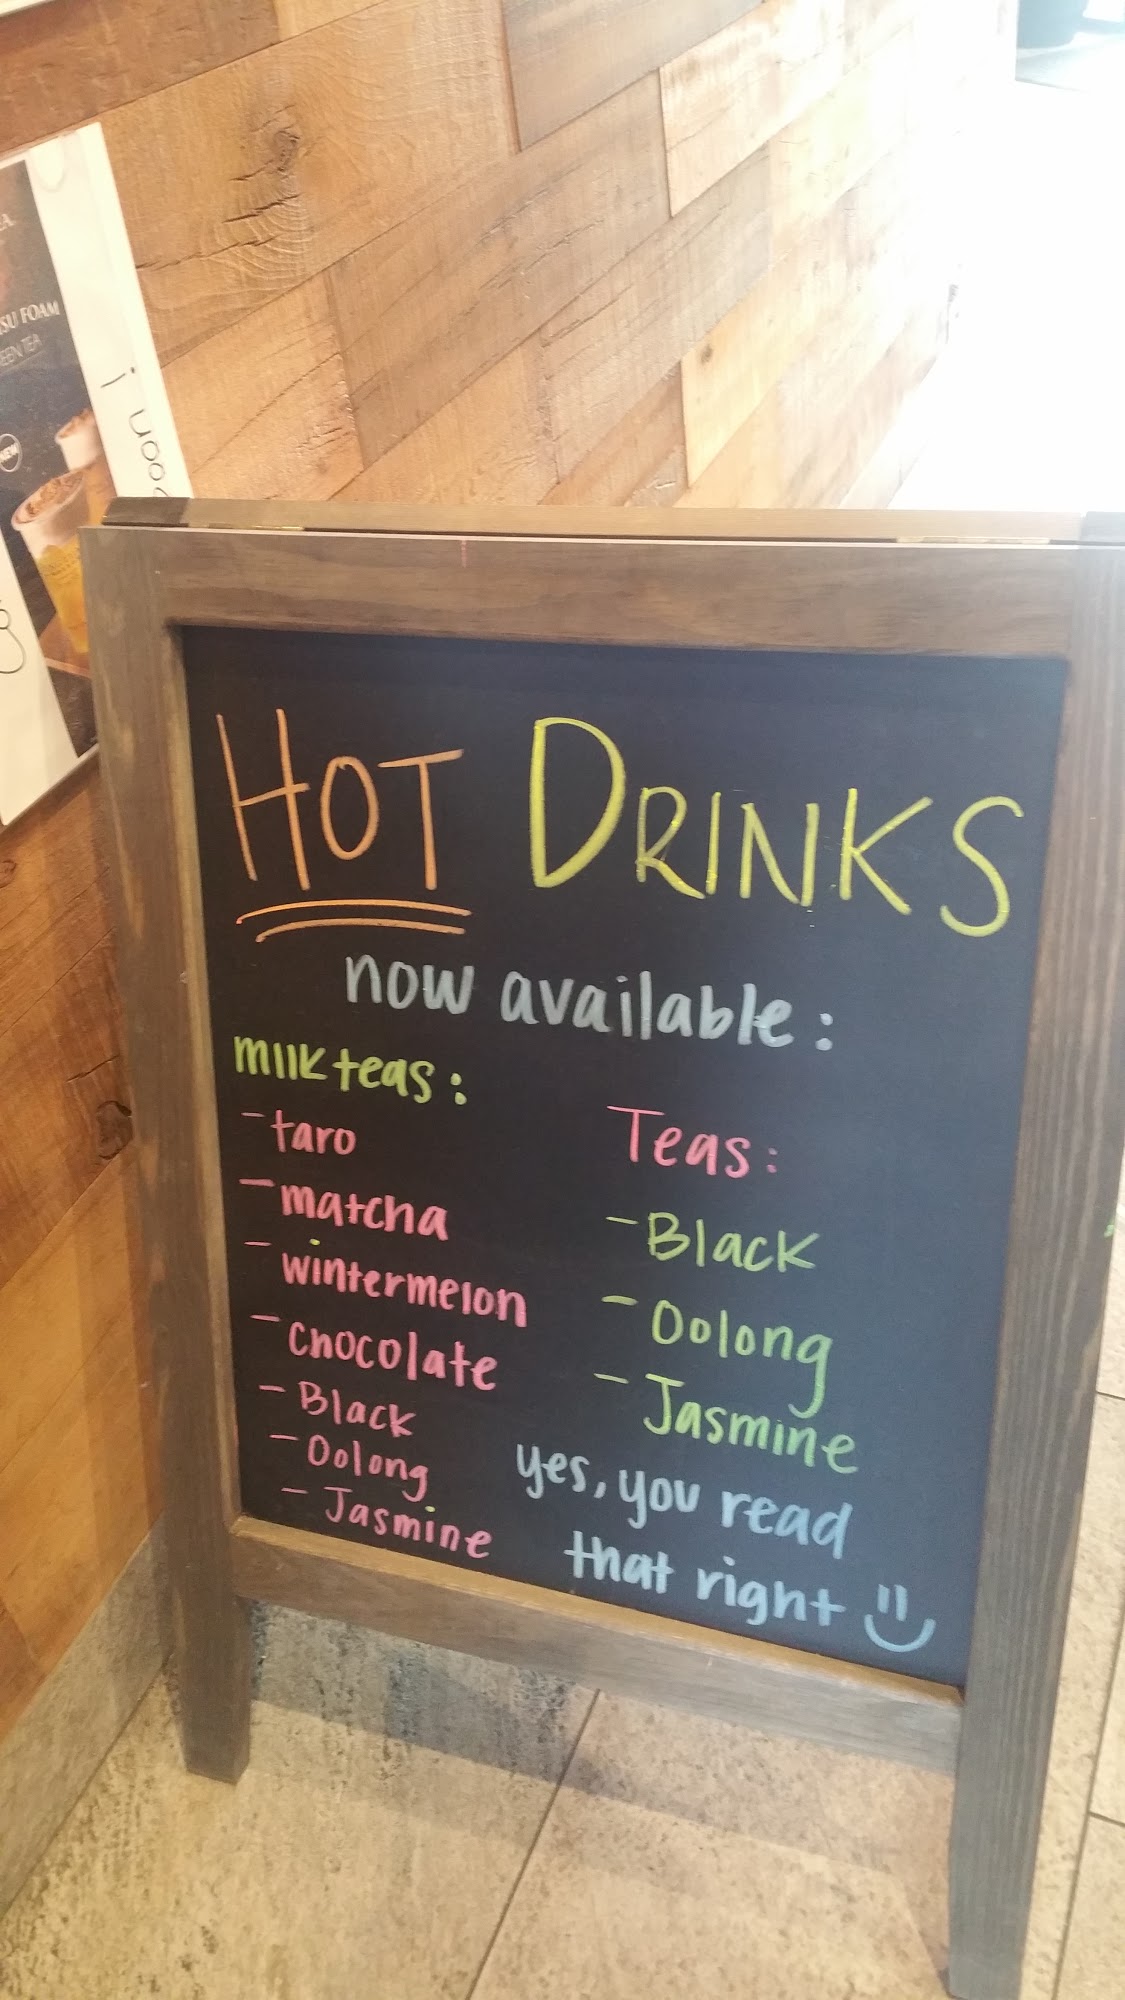 SU FOAM
EEN TEA
NEW
HOT DRINKS
now available:
milk teas:
- taro
- matcha
- wintermelon
- chocolate
- Black
- Oolong
- Jasmine
Teas:
- Black
- Oolong
- Jasmine
yes, you read
that right